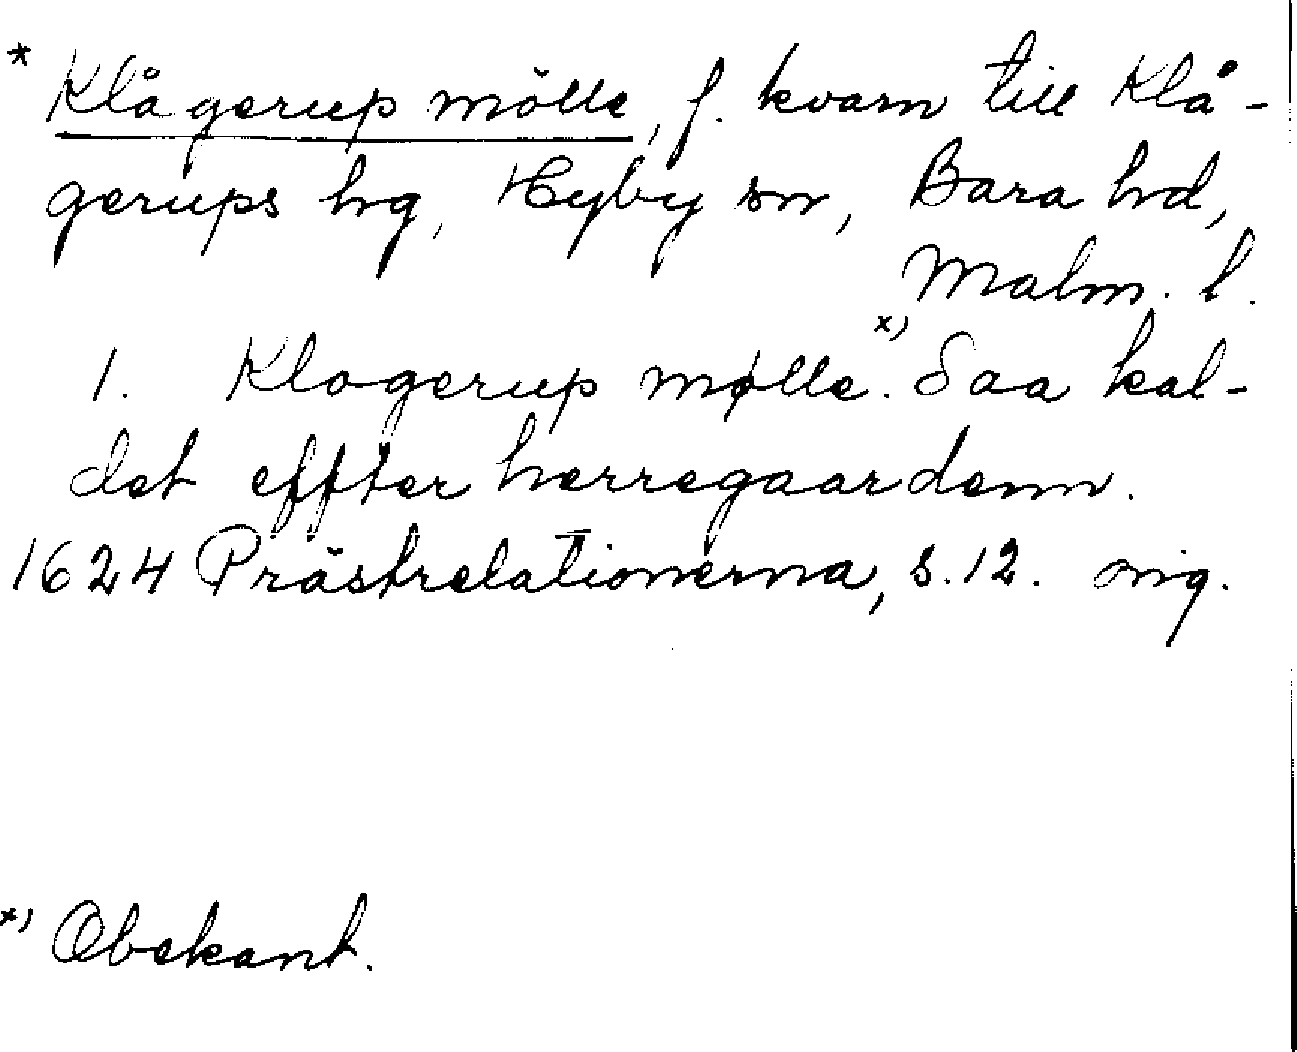 * Klågerup mölle, f. kvarn till Klå-
gerups hg, Hyby sn, Bara hd,
Malm. l.
1. Klogerup mølle.x) Saa kal-
det effter herregaardenn.
1624 Prästrelationerna, s. 12. orig.
x) Obekant.